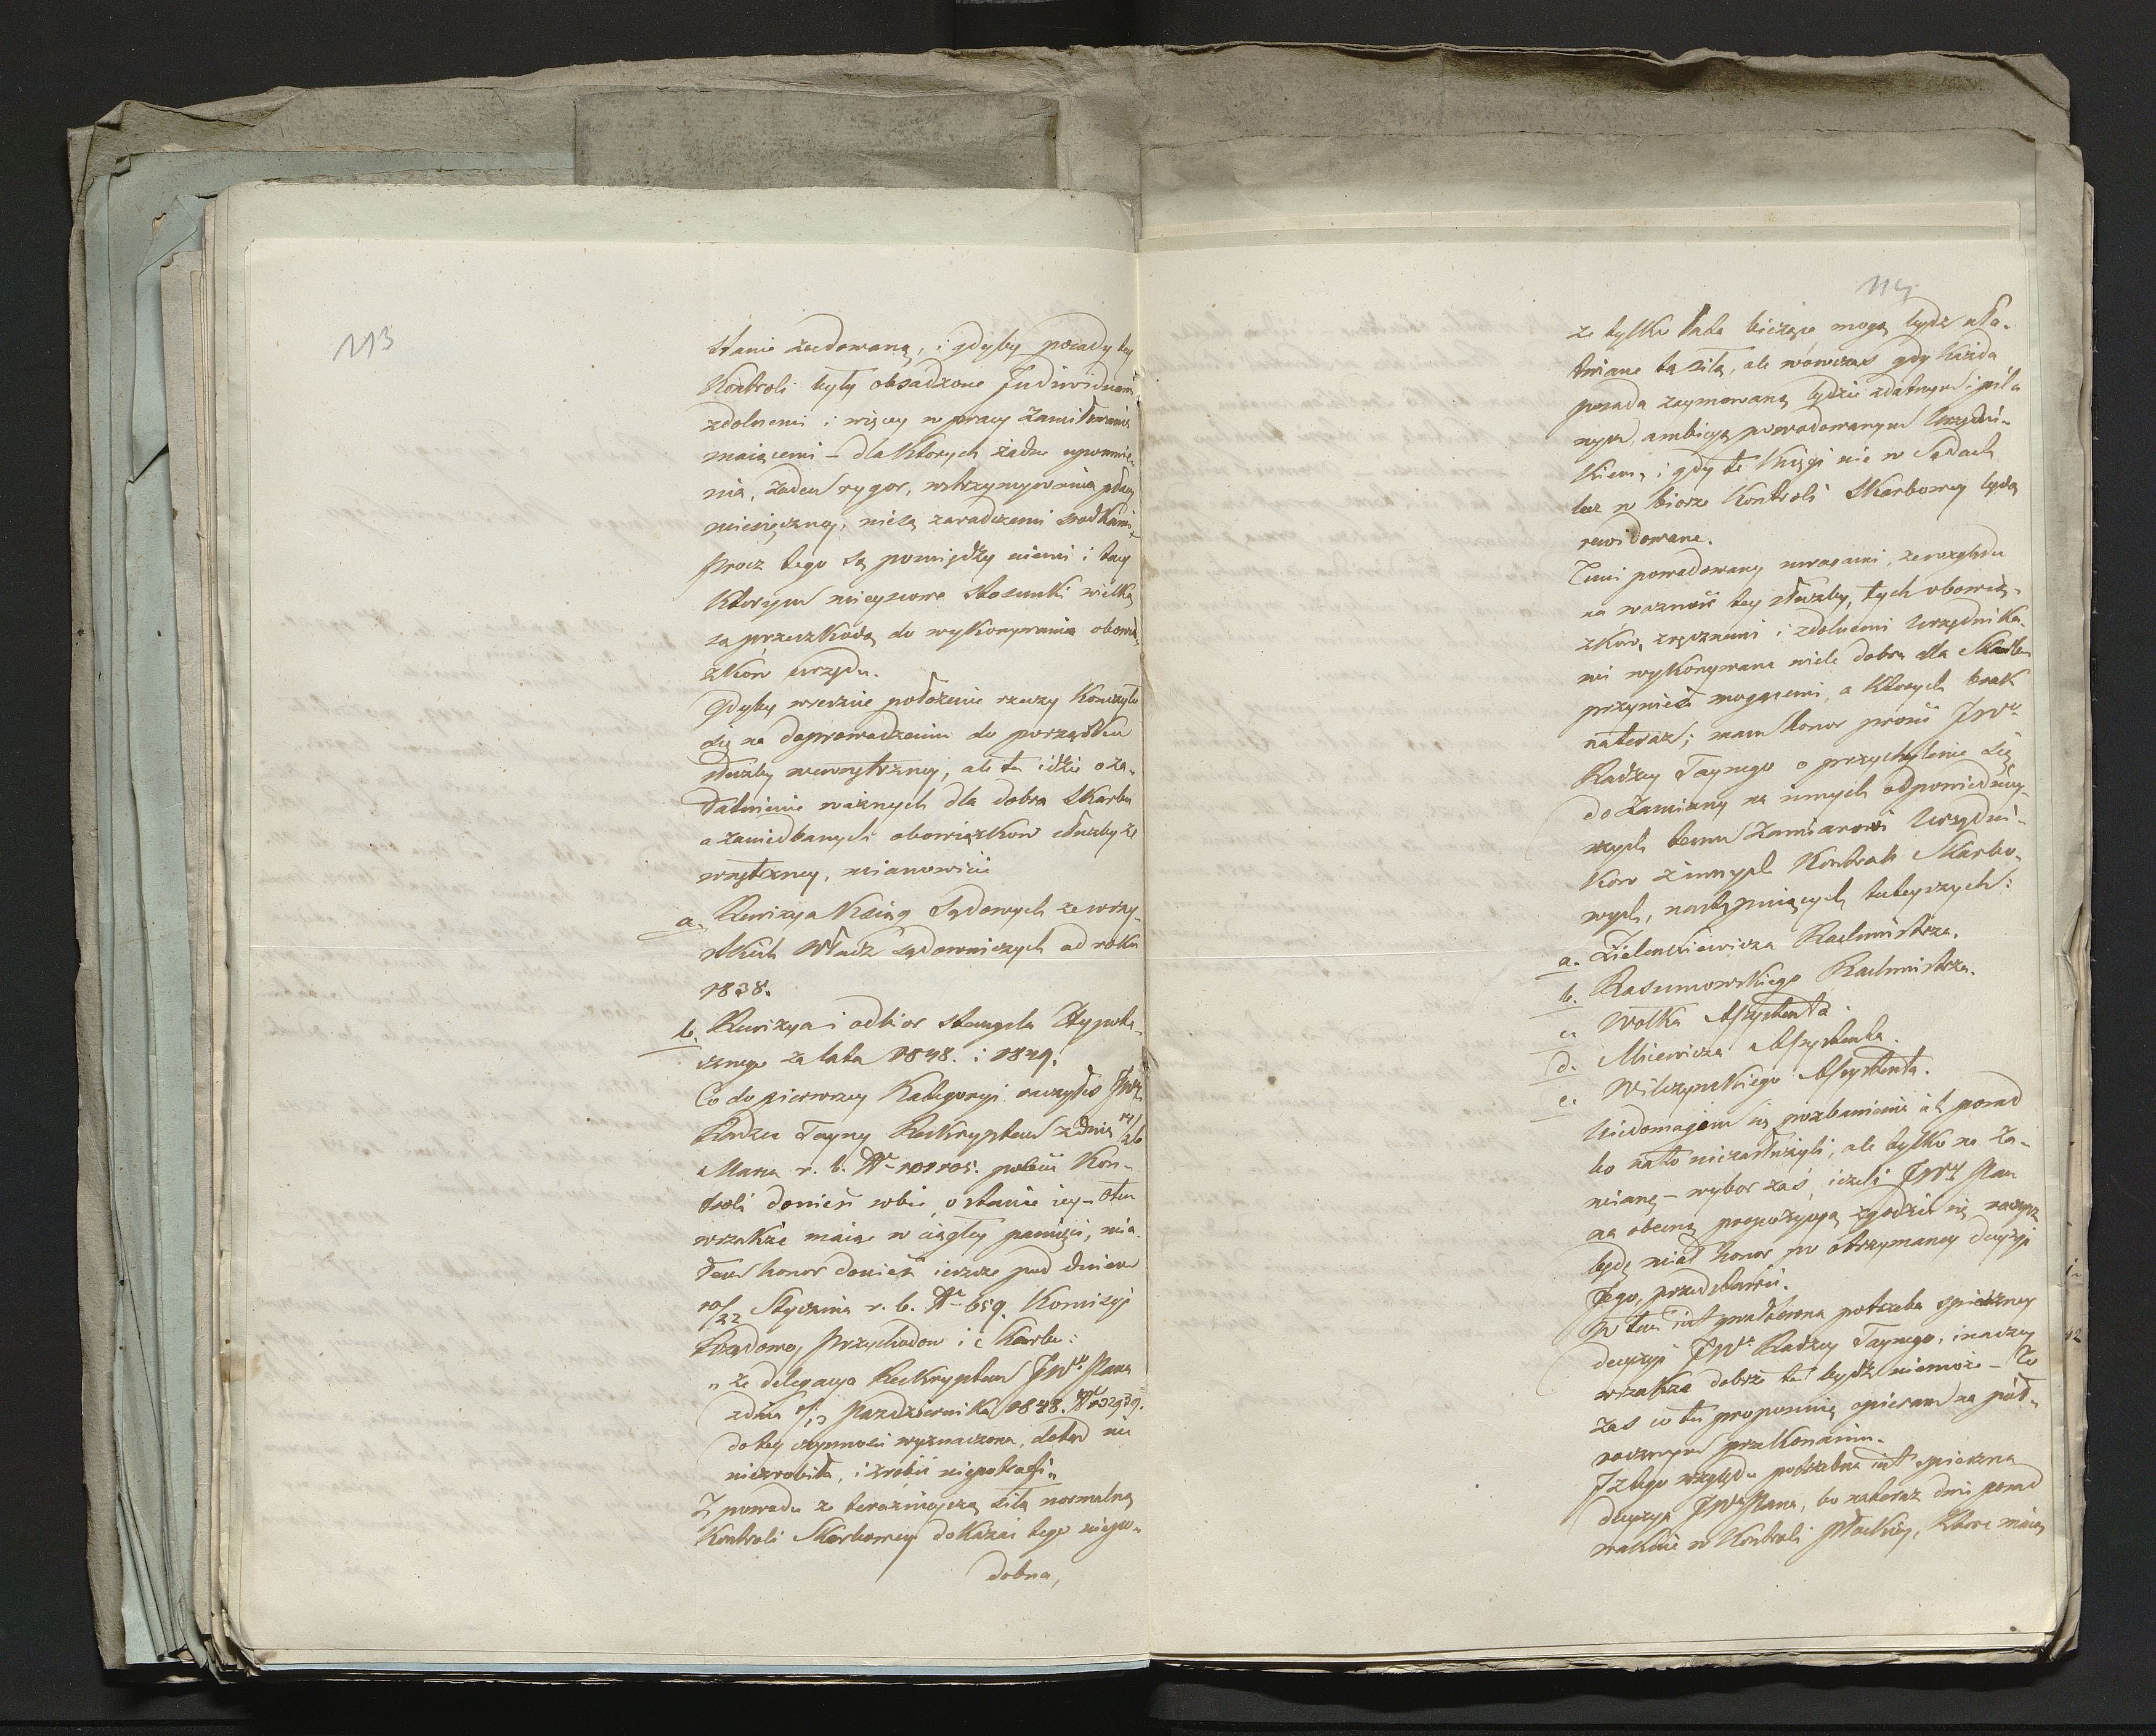 113
stanie zadowaną, i gdyby posady tey
Kontroli były obsadzone Indiwiduami
zdolnemi i więcey w pracy zamiłowania
maiącemi – dla których żadne upomnie-
nia, żaden rygor, wstrzymywania płacy
miesięczney, nie są zaradczemi srodkami
Procz tego są pomiędzy niemi i tacy
którym mieyscowe stosunki wielką
są przeszkodą do wykonywania obowią
zków urzędu.
Gdyby wreszcie położenie rzeczy kończyło
się na doprowadzeniu do porządku
służby wewnętrzney, ale tu idzie o za-
łatwienie ważnych dla dobra Skarbu
a zaniedbanych obowiązkow służby ze
wnętrzney, mianowicie
a. Rewizya Ksiąg Sądowych ze wszy-
stkich Władz Sądowniczych od roku
1838.
b. Rewizya i odbior stempla Hypote-
cznego za lata 1848. i 1849.
Co do pierwszey Kategoryi raczyłeś JWy
Radzco Tayny Reskryptem z dnia 14/26
Marca r. b. Nr 101105. polecić Kon-
troli donieść sobie, o stanie iey – O tem
wszakże maiąc w ciągłey pamięci, mia-
łem honor donieść ieszcze pod dniem
10/22 Stycznia r. b. Nr 659. Komisyi
Rządowey Przychodow i Skarbu:
„ że delegacya Reskryptem JWo Pana
z dnia 1/13 Pazdziernika 1848. Nr 103939.
do tey czynności wyznaczona, dotąd nic
niezrobiła, i zrobić niepotrafi „
Z powodu że teraźnieyszą siłą normalną
Kontroli Skarbowey dokazać tego niepo-
dobna,
114
że tylko lata bieżące mogą bydź uła-
twiane tą siłą, ale wówczas gdy każda
posada zaymowaną będzie zdatnym i pil-
nym, ambicyą powodowanym Urzędni-
kiem, i gdy te Księgi nie w Sądach
lecz w biorze Kontroli Skarbowey będą
rewidowane.
Temi powodowany uwagami, ze względu
na ważność tey służby, tych obowią-
zków, zręcznemi i zdolnemi Urzędnika-
mi wykonywane wiele dobra dla Skarbu
przynieść mogącemi, a których brak
nateraz; mam honor prosić JWo
Radzcy Taynego o przychylenie się
do zamiany na innych odpowiedniey-
szych temu zamiarowi Urzędni-
kow z innych Kontroli Skarbo-
wych, następuiących tuteyszych:
a. Zielenkiewicza Rachmistrza.
b. Rasumowskiego Rachmistrza.
c. Wolka Assystenta
d. Miewicza Assystenta.
e. Wilczynskiego Assystenta.
Niedomagam się pozbawienia ich posad
bo na to niezasłużyli, ale tylko na za-
mianę – wybor zaś, ieżeli JWy Pan
na obecną propozycyą zgodzić się raczysz
będę miał honor po otrzymaney decyzyi
Jego, przedstawić.
W tem iest gwałtowna potrzeba spieszney
decyzyi JWo Radzcy Taynego, inaczey
wszakże dobrze tu bydź niemoże – To
zas co tu proponuię opieram na pół-
rocznym przekonaniu.
Z tego względu potrzebna iest spieszna
decyzya JWo Pana, bo nateraz dwie posad
wakuie w Kontroli Płockiey, które maią